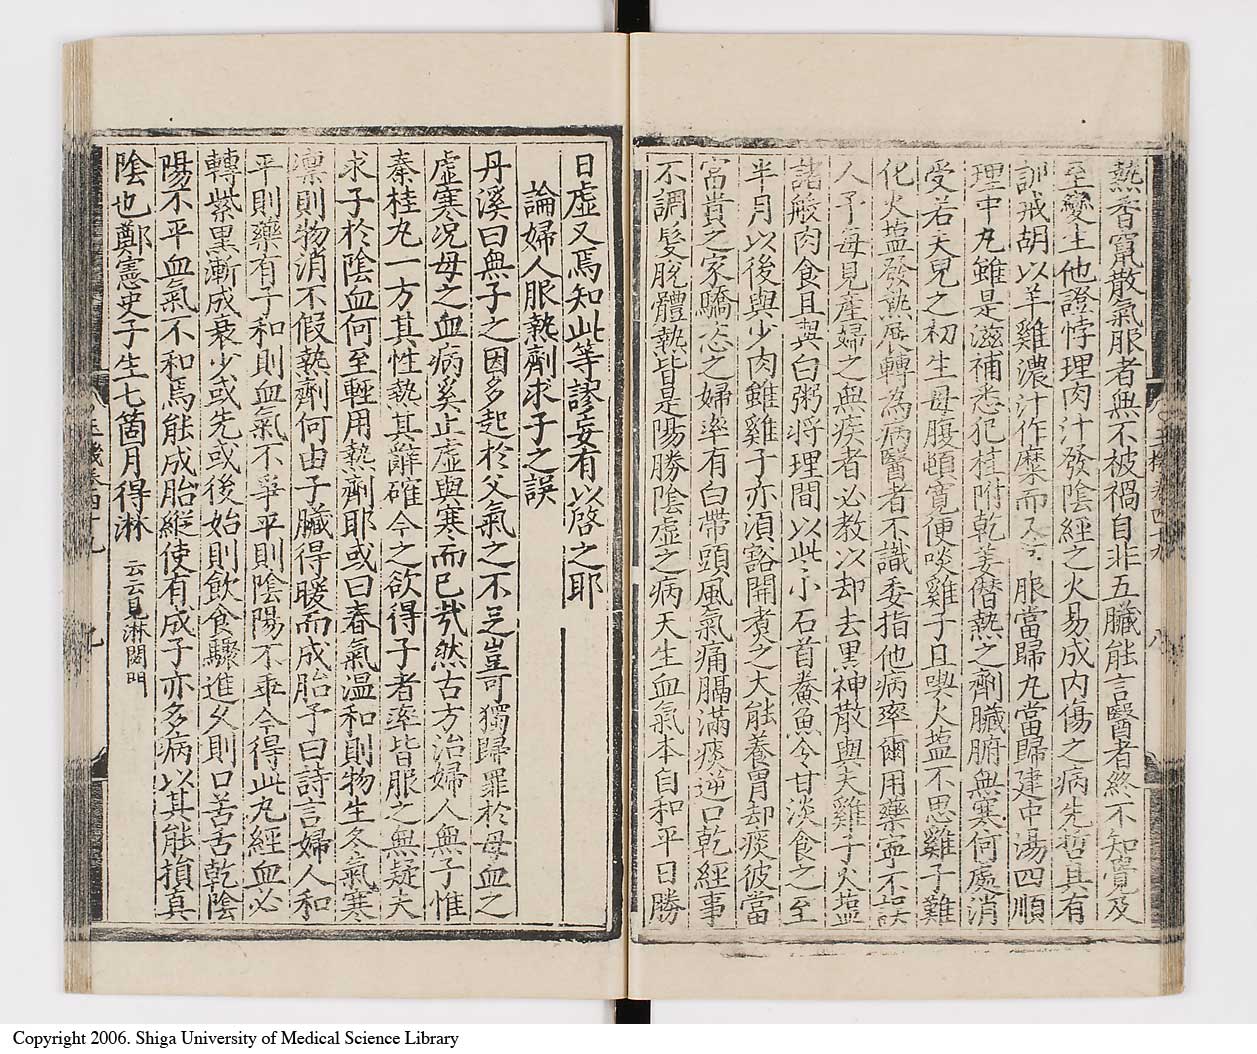 熱香竄散氣服者無不被禍自非五臟能言醫者終不知覺及
至變生他證悖理肉汁發陰經之火易成內傷之病先哲具有
訓戒胡以羊雞濃汁作糜而又 服當歸丸當歸建中湯四順
理中丸雖是滋補悉犯桂附乾姜僭熱之劑臟腑無寒何處消
受若夫兒之初生母腹頓寬便啖雞子且喫火塩不思雞子難
化火塩發熱展轉為病醫者不識委指他病率爾用藥寧不誤
人予每見產婦之無疾者必教以却去黑神散與夫雞子火塩
諸般肉食且與白粥將理間以些小石首鯗魚令甘淡食之至
半月以後與少肉雖雞子亦湏豁開煑之大能養胃却痰彼當
富貴之家驕恣之婦率有白帶頭風氣痛膈滿痰逆口乾經事
不調髮脫體熱皆是陽勝陰虛之病天生血氣本自和平曰勝
曰虛又焉知此等謬妄有以啓之耶
論婦人服熱劑求子之誤
丹溪曰無子之因多起於父氣之不足豈可獨歸罪於母血之
虛寒况母之血病奚止虛與寒而已哉然古方治婦人無子惟
秦桂丸一方其性熱其辭確今之欲得子者率皆服之無疑夫
求子於陰血何至輕用熱劑耶或曰春氣温和則物生冬氣寒
凛則物消不假熱劑何由子臟得暖而成胎予曰詩言婦人和
平則藥有子和則血氣不爭平則陰陽不乖今得此丸經血必
轉紫黑漸成衰少或先或後始則飲食驟進久則口苦舌乾陰
陽不平血氣不和焉能成胎縱使有成子亦多病以其能損真
陰也鄭憲史子生七箇月得淋 云云見淋閟門